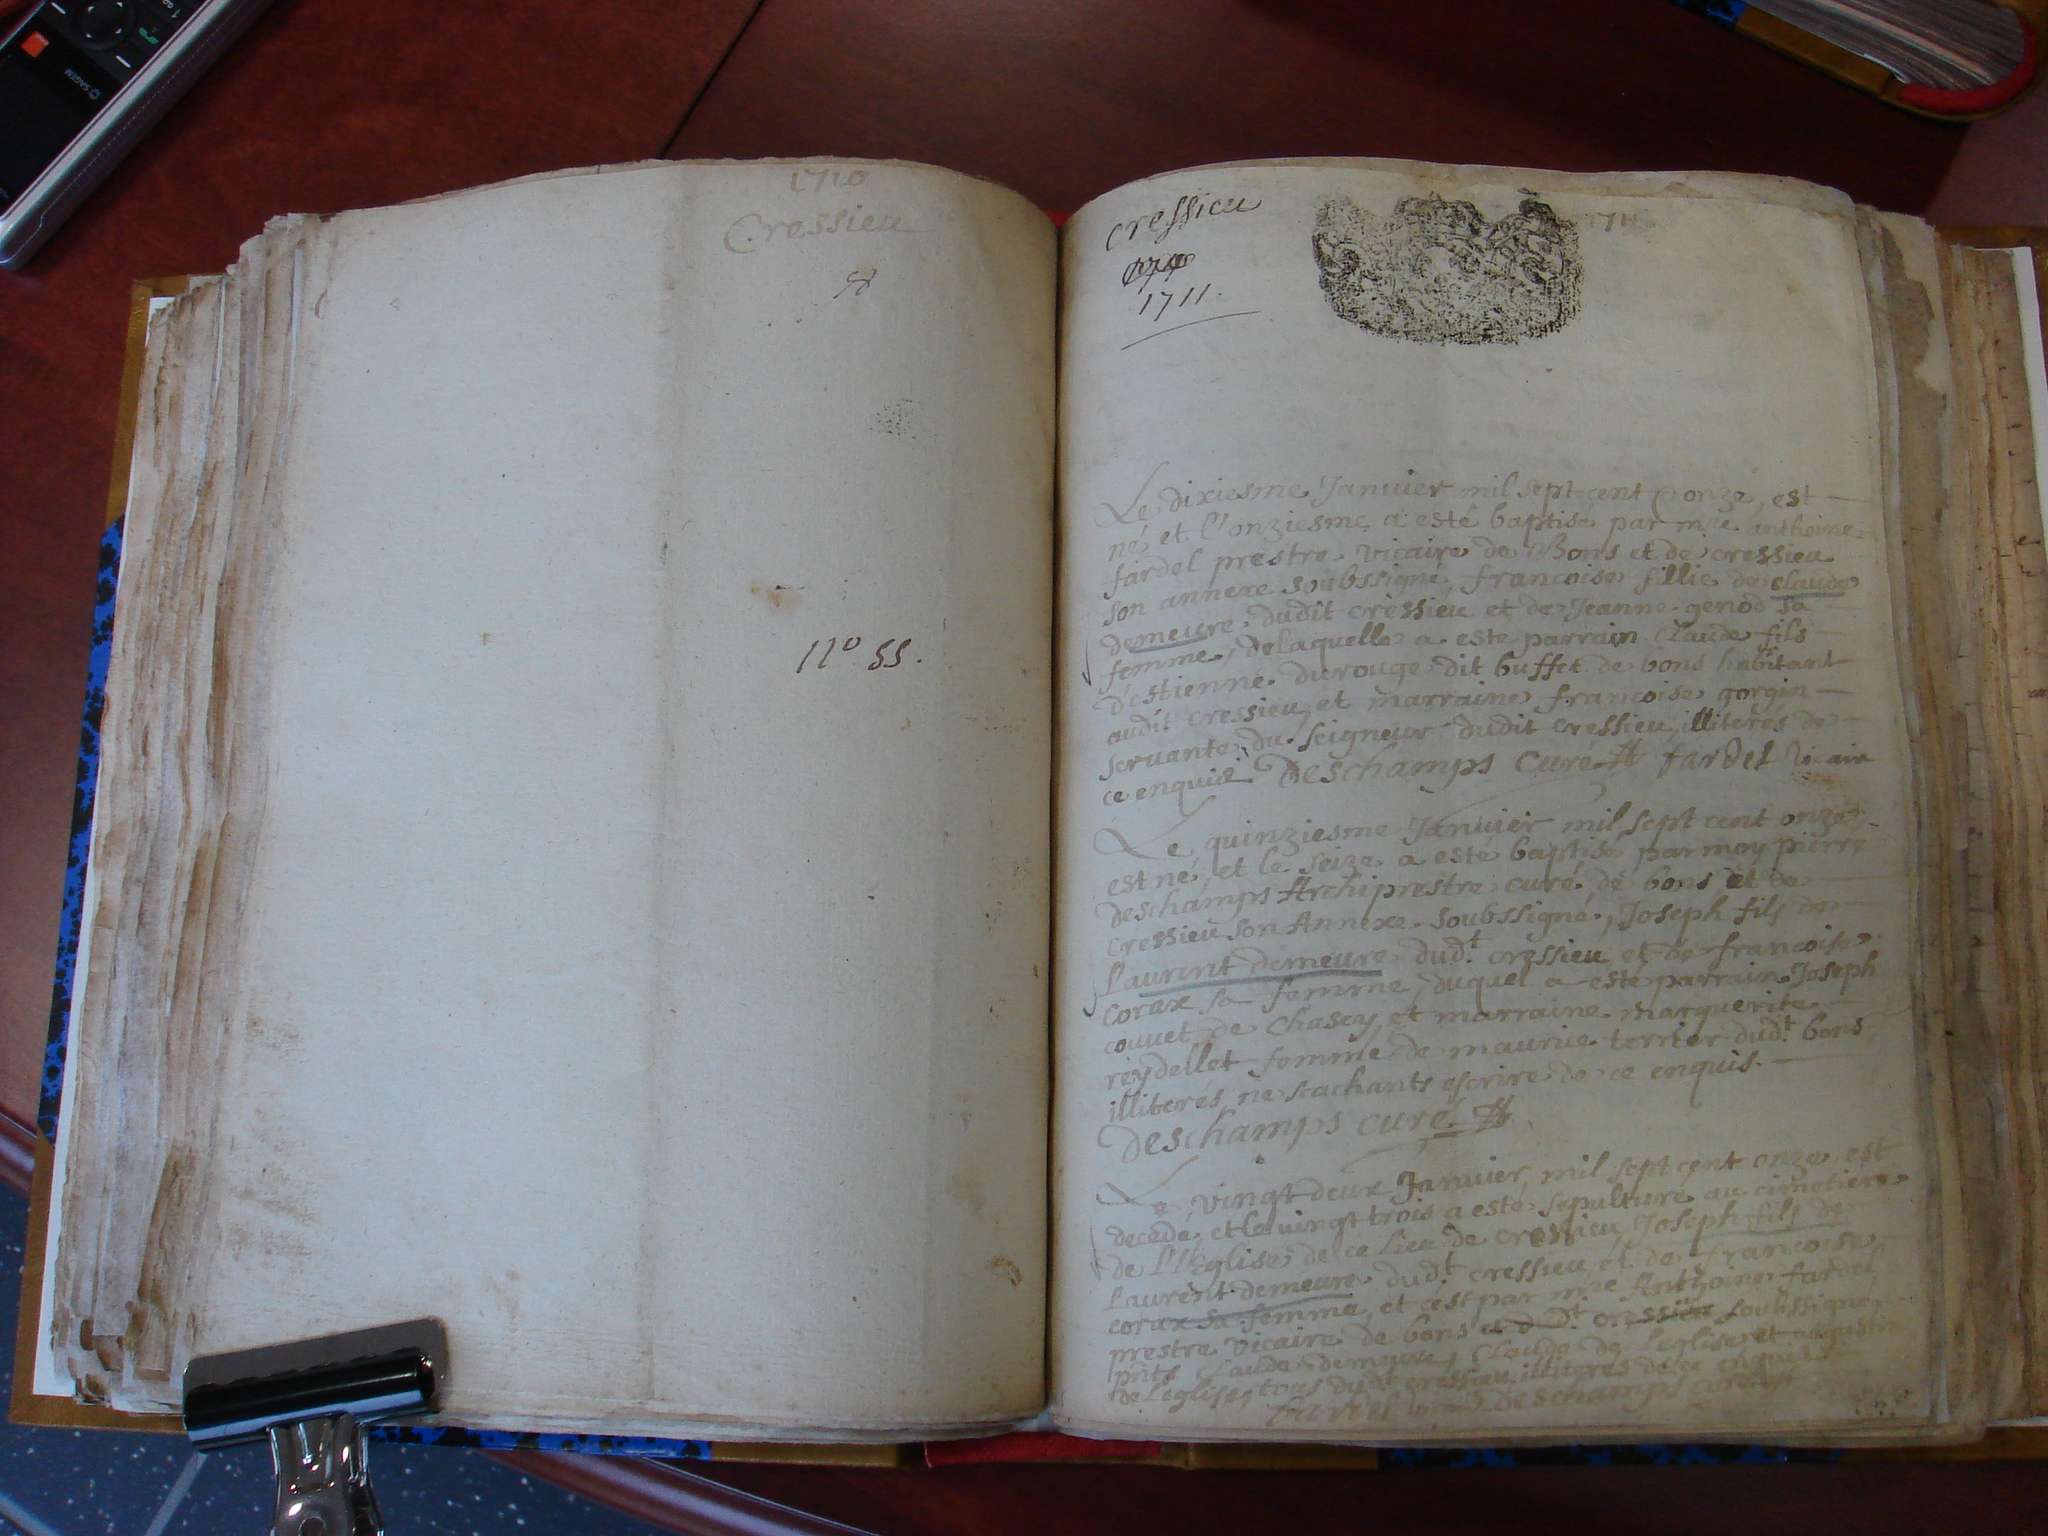 SAGEM
1710
Cressieu
11º SS.
Cressieu
1711.
1711
Le dixiesme Janvier mil sept cent onze, est
né et l'onziesme a esté baptisé par mre anthoine
fardel prestre vicaire de Bons et de cressieu
son annexe soubssigné, francoise fillie de claude
demeure dudit cressieu et de Jeanne genod sa
femme, delaquelle a esté parrain Claude fils
d'estienne durouge dit buffet de bons habitant
audit cressieu, et marraine francoise gorgin
servante du seigneur dudit cressieu, illiterés de
ce enquis Deschamps Curé fardel vicaire
Le quinziesme Janvier mil sept cent onze,
est né, et le seize a esté baptisé par moy pierre
deschamps Archiprestre curé de bons et de
cressieu son Annexe soubssigné, Joseph fils de
laurent demeure dudt cressieu et de francoise
corax sa femme, duquel a esté parrain Joseph
couuet de Chasey, et marraine marguerite
reydellet femme de maurice terrier dudt bons
illiterés ne scachants escrire de ce enquis.
Deschamps curé
Le vingt deux Janvier mil sept cent onze, est
decedé, et le vingt trois a esté sepulturé au cimetiere
de l'Eglise de ce lieu de cressieu, Joseph fils de
laurent demeure dudt cressieu et de francoise
corax sa femme, et c'est par mre Anthoine fardel
prestre vicaire de bons et dudt cressieu soubssigné,
pnts claude demeure, Claude de l'eglise et
de l'eglise, tous dudt cressieu illiterés de ce enquis
fardel Deschamps curé